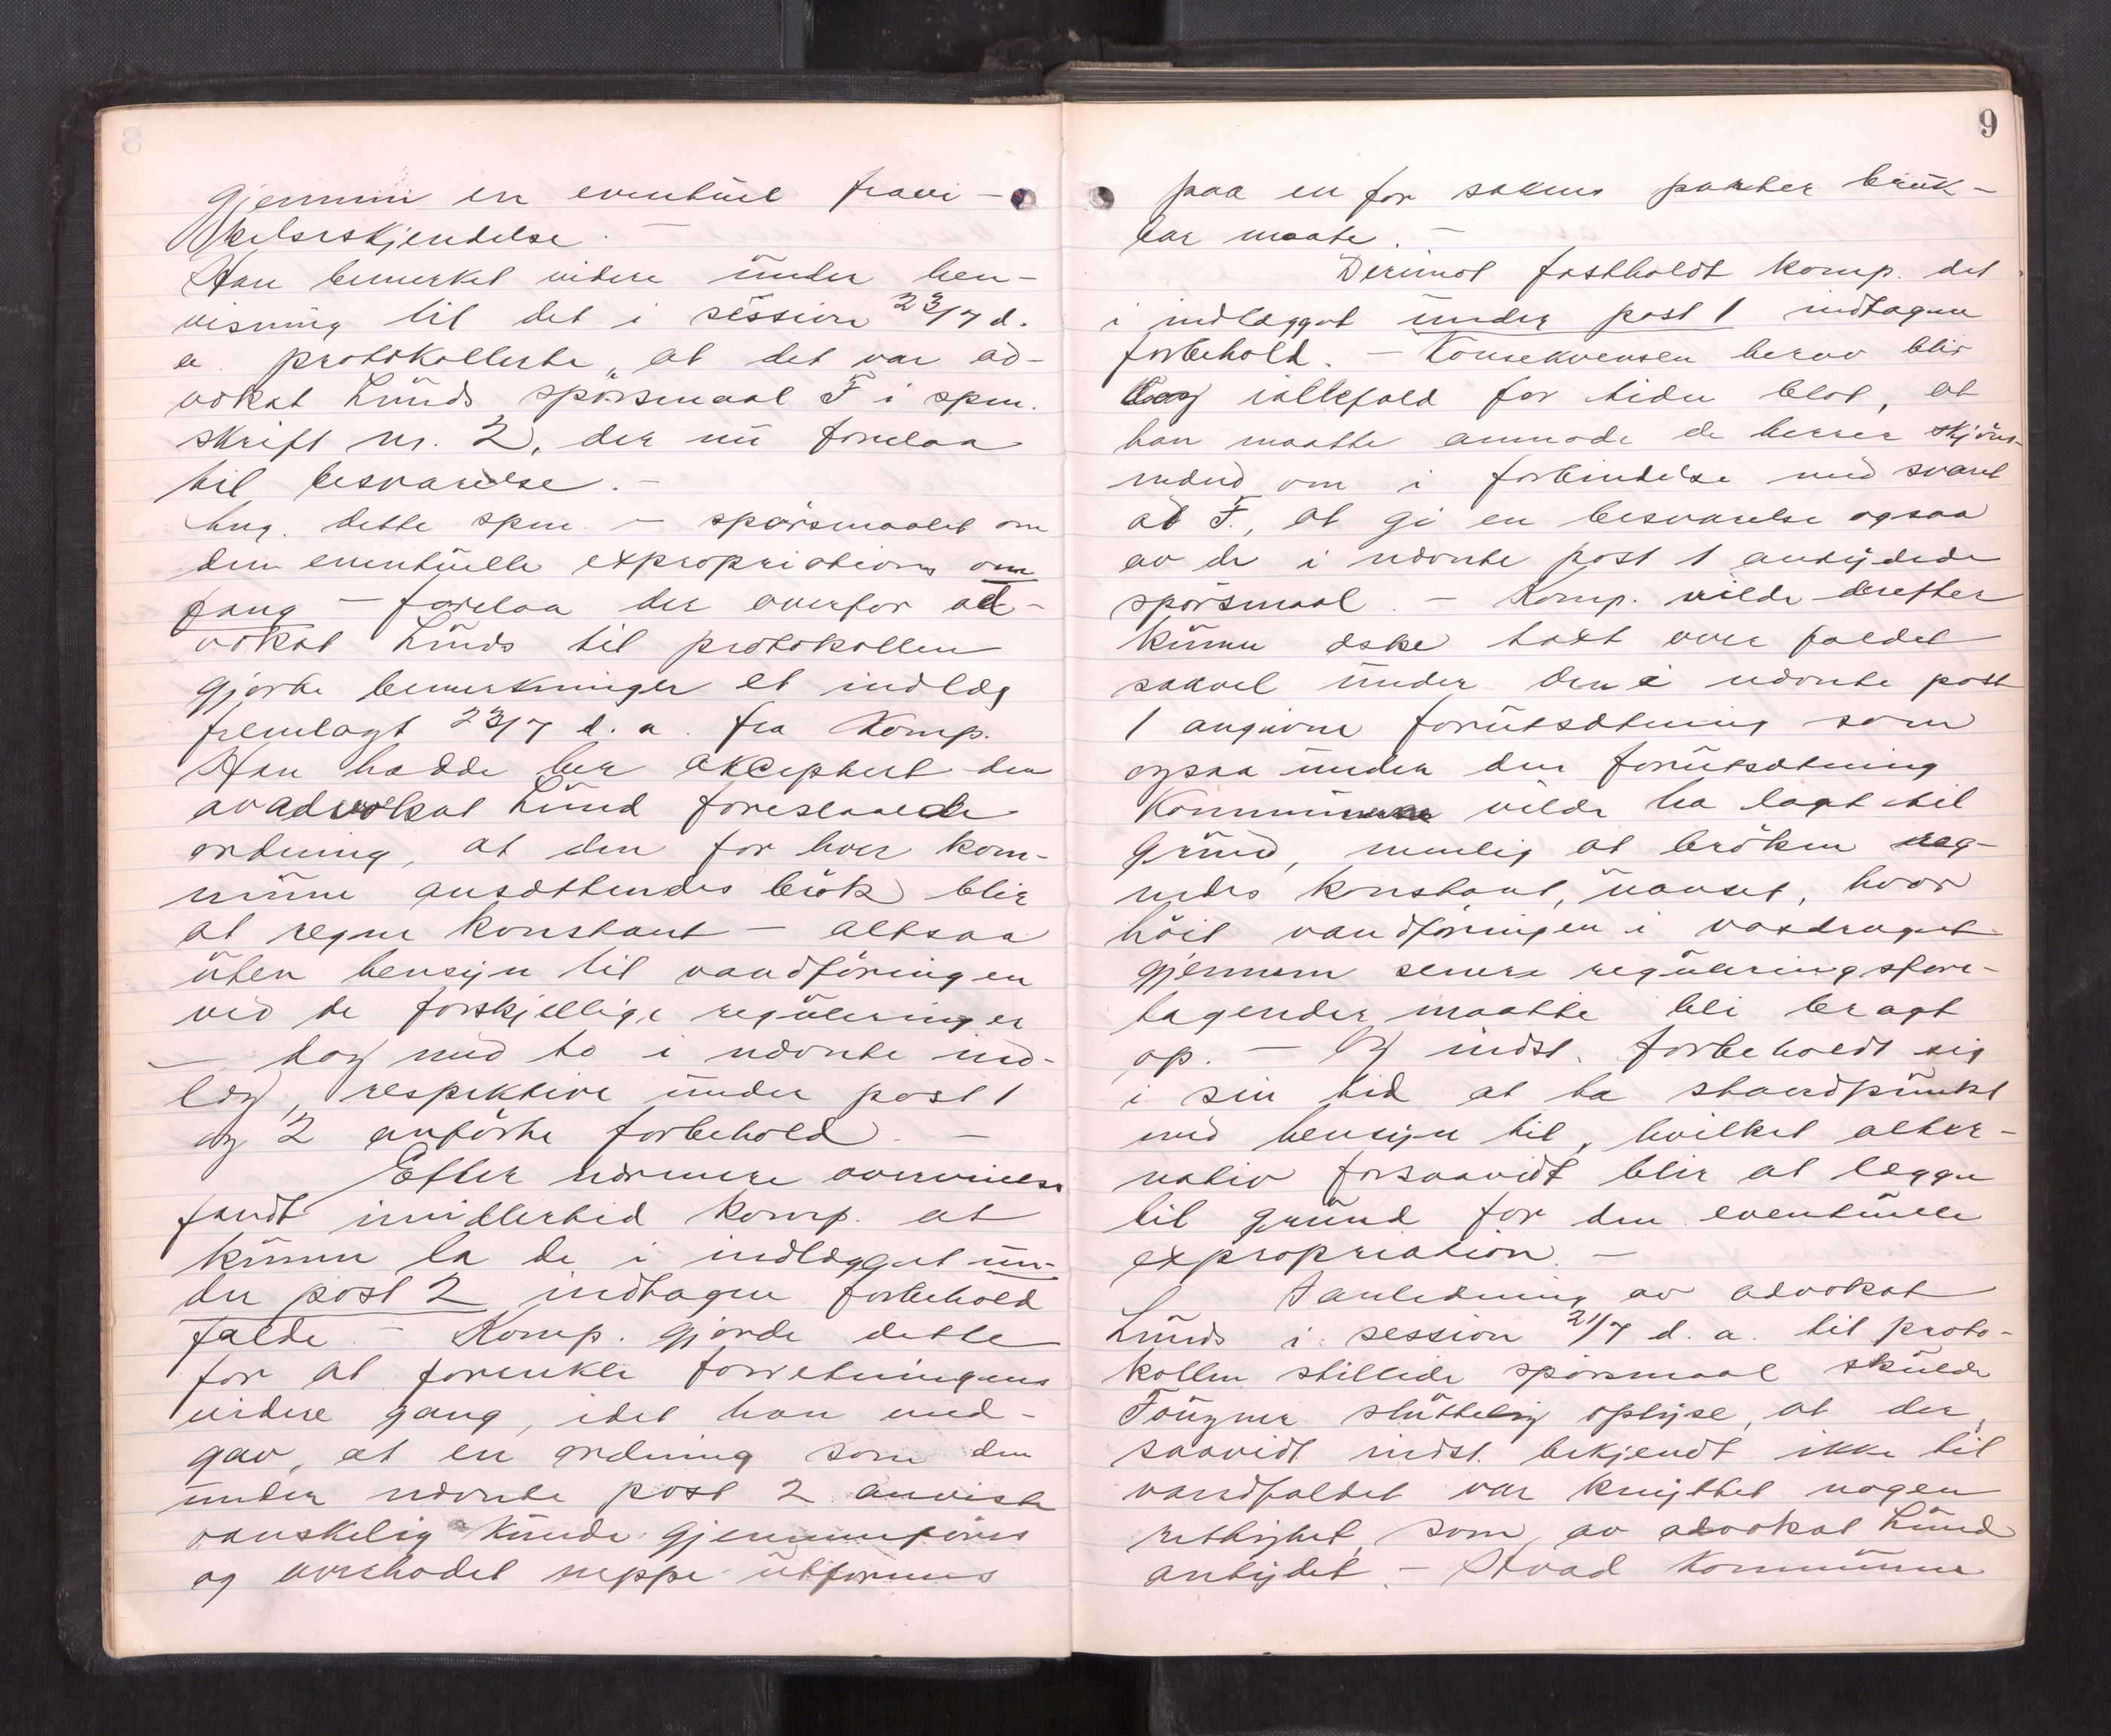 8
gjennem en eventuel fravi-
kelseskjendelse. —
Han bemerket videre under hen-
visning til det i session 23/7 d.
a. protokollerte, at det var ad-
vokat Lunds spörsmaal F i spm.
skrift nr. 2, der nu forelaa
til besvarelse. —
Ang. dette spm. — spörsmaalet om
den eventuelle expropriations om
fang — forelaa der overfor ad-
vokat Lunds til protokollen
gjorte bemerkninger et indlæg
fremlagt 23/7 d. a. fra Komp.
Han hadde her akceptert den
av advokat Lund foreslaaede
ordning, at den for hver kom-
mune ansættendes brök blir
at regne konstant — altsaa
uten hensyn til vandföringen
ved de forskjellige reguleringer
— dog med to i nævnte ind-
læg, respektive under post 1
og 2 anförte forbehold. —
Efter nærmere overveielse
fandt imidlertid Komp. at
kunne la de i indlægget un-
der post 2 indtagne forbehold
falde. — Komp. gjorde dette
for at forenkle forretningens
videre gang, idet han med-
gav, at en ordning som den
under nævnte post 2 anviste
vanskelig kunde gjennemföres
og overhodet neppe utformes
9
paa en for sakens parter bruk-
bar maate. —
Derimot fastholdt Komp. det
i indlægget under post 1 indtagne
forbehold. — Konsekvensen herav blir
iallefald for tiden blot, at
han maatte anmode de herrer skjöns-
mænd om i forbindelse med svaret
at F., at gi en besvarelse ogsaa
av de i nævnte post 1 antydede
spörsmaal. — Komp. vilde derefter
kunne æske takt over faldet
saavel under den i nævnte post
1 angivne forutsætning som
ogsaa under den forutsætning
Kommunerne vilde ha lagt til
grund, nemlig at bröken reg-
nedes konstant, uanset, hvor
höit vandföringen i vasdraget
gjennem senere reguleringsfore-
tagender maatte bli bragt
op. — Og indst. forbeholdt sig
i sin tid at ta standpunkt
med hensyn til, hvilket alter-
nativ forsaavidt blir at lægge
til grund for den eventuelle
expropriation. —
I anledning av advokat
Lunds i session 21/7 d. a. til proto-
kollen stillede spörsmaal skulde
Tougner sluttelig oplyse, at der,
saavidt indst. bekjendt ikke til
vandfaldet var knyttet nogen
rettighet, som av advokat Lund
antydet. — Hvad Kommunene